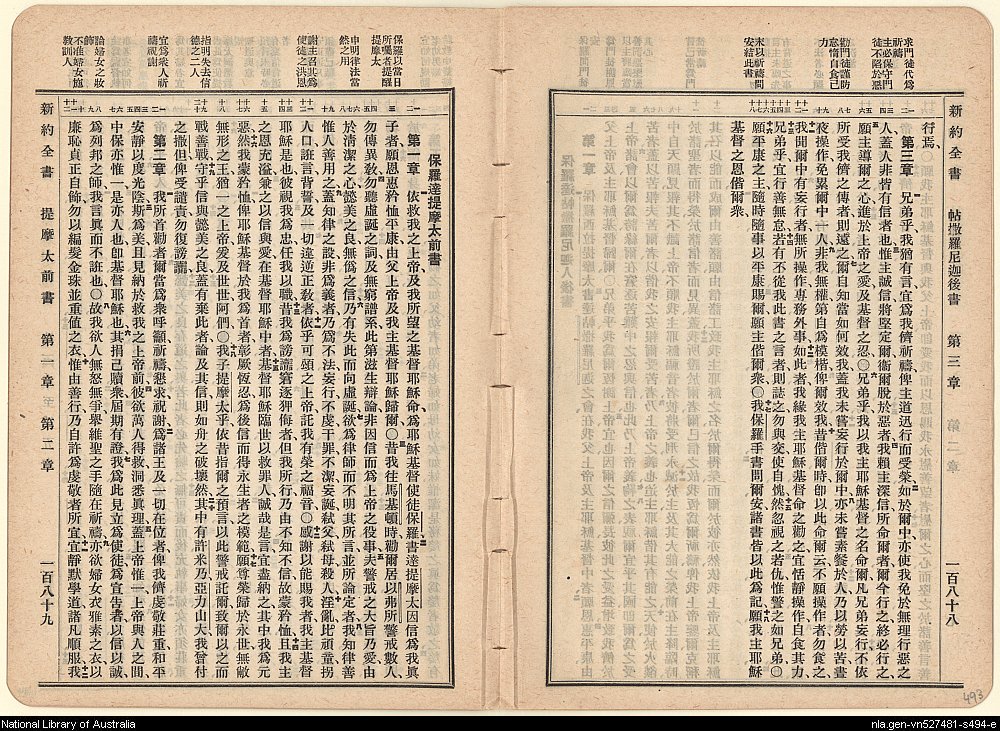 新約全書 帖撒羅尼迦後書 第三章 一百八十八
求門徒代爲
祈禱
主必保守門
徒不陷於惡
勸門徒謹防
怠惰自食己
力
末以祈禱問
安結此書
行焉、
第三章 兄弟乎我猶有言宜爲我儕祈禱俾主道迅行而受榮如於爾中亦使我免於無理行惡之
人蓋人非皆有信者也惟主誠信將堅定爾衞爾脫於惡者我賴主深信所命爾者爾今行之終必行之
願主導爾之心進於上帝之愛及基督之忍〇兄弟乎我以我主耶穌基督之名命爾凡兄弟妄行不依
所受我儕之傳者則遠之爾自知當如何效我蓋我未嘗妄行於爾中亦未嘗素餐於人乃以勞以苦晝
夜操作免累爾中一人非我無權第自爲模楷俾爾效我昔偕爾時卽以此命爾云不願操作者勿食之
我聞爾中有妄行者無所操作專務外事如此者我緣我主耶穌基督命之勸之宜恬靜操作自食其力
兄弟乎行善無怠若有不從我此書之言者則誌之勿與交使自愧然勿視之若仇惟警之如兄弟〇
願平康之主隨時隨事以平康賜爾願主偕爾衆〇我保羅手書問爾安諸書皆以此爲記願我主耶穌
基督之恩偕爾衆
保羅以當日
所囑者提醒
提摩太
申明律法當
然之用
謝主召其爲
使徒之洪恩
指明失去信
德之二人
宜爲衆人祈
禱視謝
論婦女之妝
飾
不准婦女施
教訓人
保羅達提摩太前書
第一章 依救我之上帝及我所望之基督耶穌命爲耶穌基督使徒保羅書達提摩太因信爲我眞
子者願恩惠矜恤平康由父上帝及我主基督耶穌歸爾〇昔我往馬基頓時勸爾居以弗所警戒數人
勿傳異教勿聽虛誕之詞及無窮譜系此第滋生辯論非因信而爲上帝之役事夫警戒之大旨乃愛由
於清潔之心懿美之良無僞之信乃有失此而向虛誕欲爲律師而不明其所言並所論定者我知律善
惟人善用之蓋知律之設非爲義者乃爲不法妄行不虔干罪不潔妄誕弒父弒母殺人淫亂比頑童拐
人口誑言背誓及一切違逆正教者依乎可頌之上帝託我有榮之福音〇感謝以能賜我者我主基督
耶穌是也彼視我爲忠任我以職昔我爲謗讟窘逐狎侮者但我所行乃由不知不信故蒙矜恤且我主
之恩充溢兼之以信與愛在基督耶穌中者基督耶穌臨世以救罪人誠哉是言宜盡納之其中我爲元
惡然我蒙矜恤俾耶穌基督於我爲首者彰厥恆忍爲後信而得永生者之模範願尊榮歸於永世無敝
無形之王獨一之上帝爰及世世阿們〇我子提摩太乎依昔指爾之預言以此警戒託爾致爾以之而
戰善戰守乎信與懿美之良蓋有棄此者論及其信則如舟之破壞然其中有許米乃亞力山大我曾付
之撒但俾受譴責勿復謗讟
第二章 我所首勸者爾當爲衆呼籲祈禱懇求祝謝爲諸王及一切在位者俾我儕虔敬莊重和平
安靜以度光陰斯爲美且見納於救我之上帝前彼欲萬人得救洞悉眞理蓋上帝惟一上帝與人之間
中保亦惟一是亦人也卽基督耶穌也其捐己贖衆屆期有證我爲此見立爲使徒爲宣吿者以信以誠
爲列邦之師我言眞而不誑也〇故我欲人無怒無爭舉維聖之手隨在祈禱亦欲婦女衣雅素之衣以
廉恥貞正自飾勿以編髮金珠並重值之衣惟由善行乃自許爲虔敬者所宜宜靜默學道諸凡順服我
新約全書 提摩太前書 第一章 至 第二章 一百八十九
493
National Library of Australia
nla.gen-vn527481-s494-e